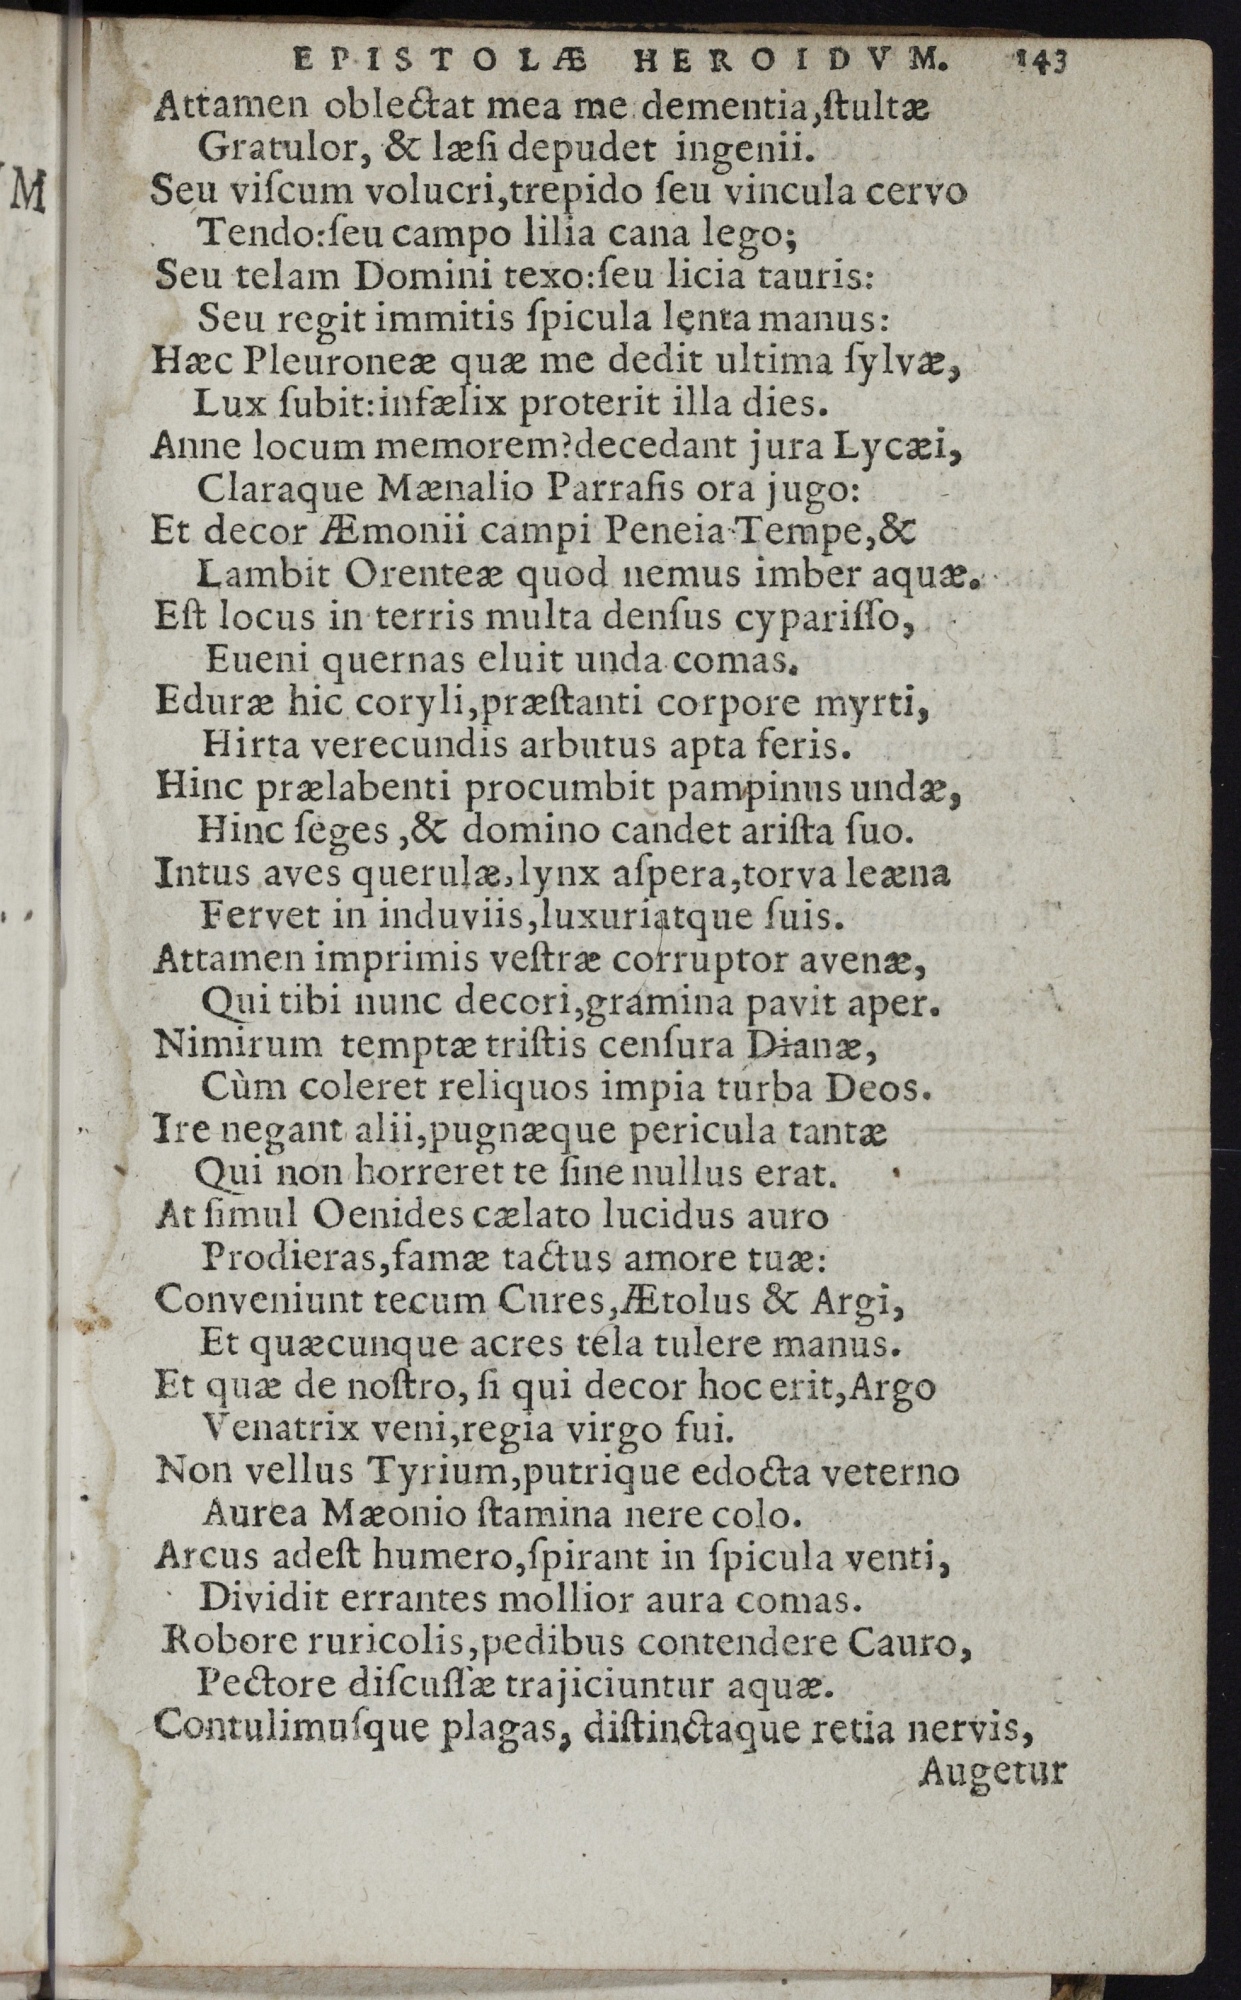 EPISTOLÆ HEROIDVM. 143
Attamen oblectat mea me dementia,ſtultæ
Gratulor, & læſi depudet ingenii.
Seu viſcum volucri,trepido ſeu vincula cervo
Tendo:ſeu campo lilia cana lego;
Seu telam Domini texo:ſeu licia tauris:
Seu regit immitis ſpicula lenta manus:
Hæc Pleuroneæ quæ me dedit ultima ſylvæ,
Lux ſubit:infælix proterit illa dies.
Anne locum memorem?decedant jura Lycæi,
Claraque Mænalio Parraſis ora jugo:
Et decor Æmonii campi Peneia Tempe,&
Lambit Orenteæ quod nemus imber aquæ.
Eſt locus in terris multa denſus cypariſſo,
Eueni quernas eluit unda comas.
Eduræ hic coryli,præſtanti corpore myrti,
Hirta verecundis arbutus apta feris.
Hinc prælabenti procumbit pampinus undæ,
Hinc ſeges ,& domino candet ariſta ſuo.
Intus aves querulæ,lynx aſpera,torva leæna
Fervet in induviis,luxuriatque ſuis.
Attamen imprimis veſtræ corruptor avenæ,
Qui tibi nunc decori,gramina pavit aper.
Nimirum temptæ triſtis cenſura Dianæ,
Cùm coleret reliquos impia turba Deos.
Ire negant alii,pugnæque pericula tantæ
Qui non horreret te ſine nullus erat.
At ſimul Oenides cælato lucidus auro
Prodieras,famæ tactus amore tuæ:
Conveniunt tecum Cures,Ætolus & Argi,
Et quæcunque acres tela tulere manus.
Et quæ de noſtro, ſi qui decor hoc erit,Argo
Venatrix veni,regia virgo fui.
Non vellus Tyrium,putrique edocta veterno
Aurea Mæonio ſtamina nere colo.
Arcus adeſt humero,ſpirant in ſpicula venti,
Dividit errantes mollior aura comas.
Robore ruricolis,pedibus contendere Cauro,
Pectore diſcuſſæ trajiciuntur aquæ.
Contulimuſque plagas, diſtinctaque retia nervis,
Augetur